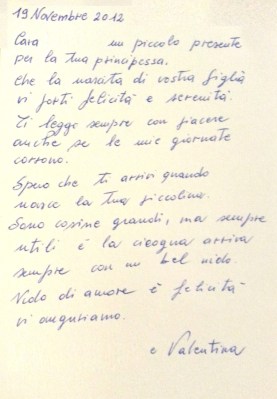 19 Novembre 2012
Cara un piccolo presente
per la tua principessa.
Che la nascita di vostra figlia
vi porti felicità e serenità.
Ti leggo sempre con piacere
anche se le mie giornate
corrono.
Spero che ti arrivi quando
nasce la tua piccolina.
Sono cosine grandi, ma sempre
utili e la cicogna arriva
sempre con un bel nido.
Nido di amore e felicità
vi auguriamo.
e Valentina